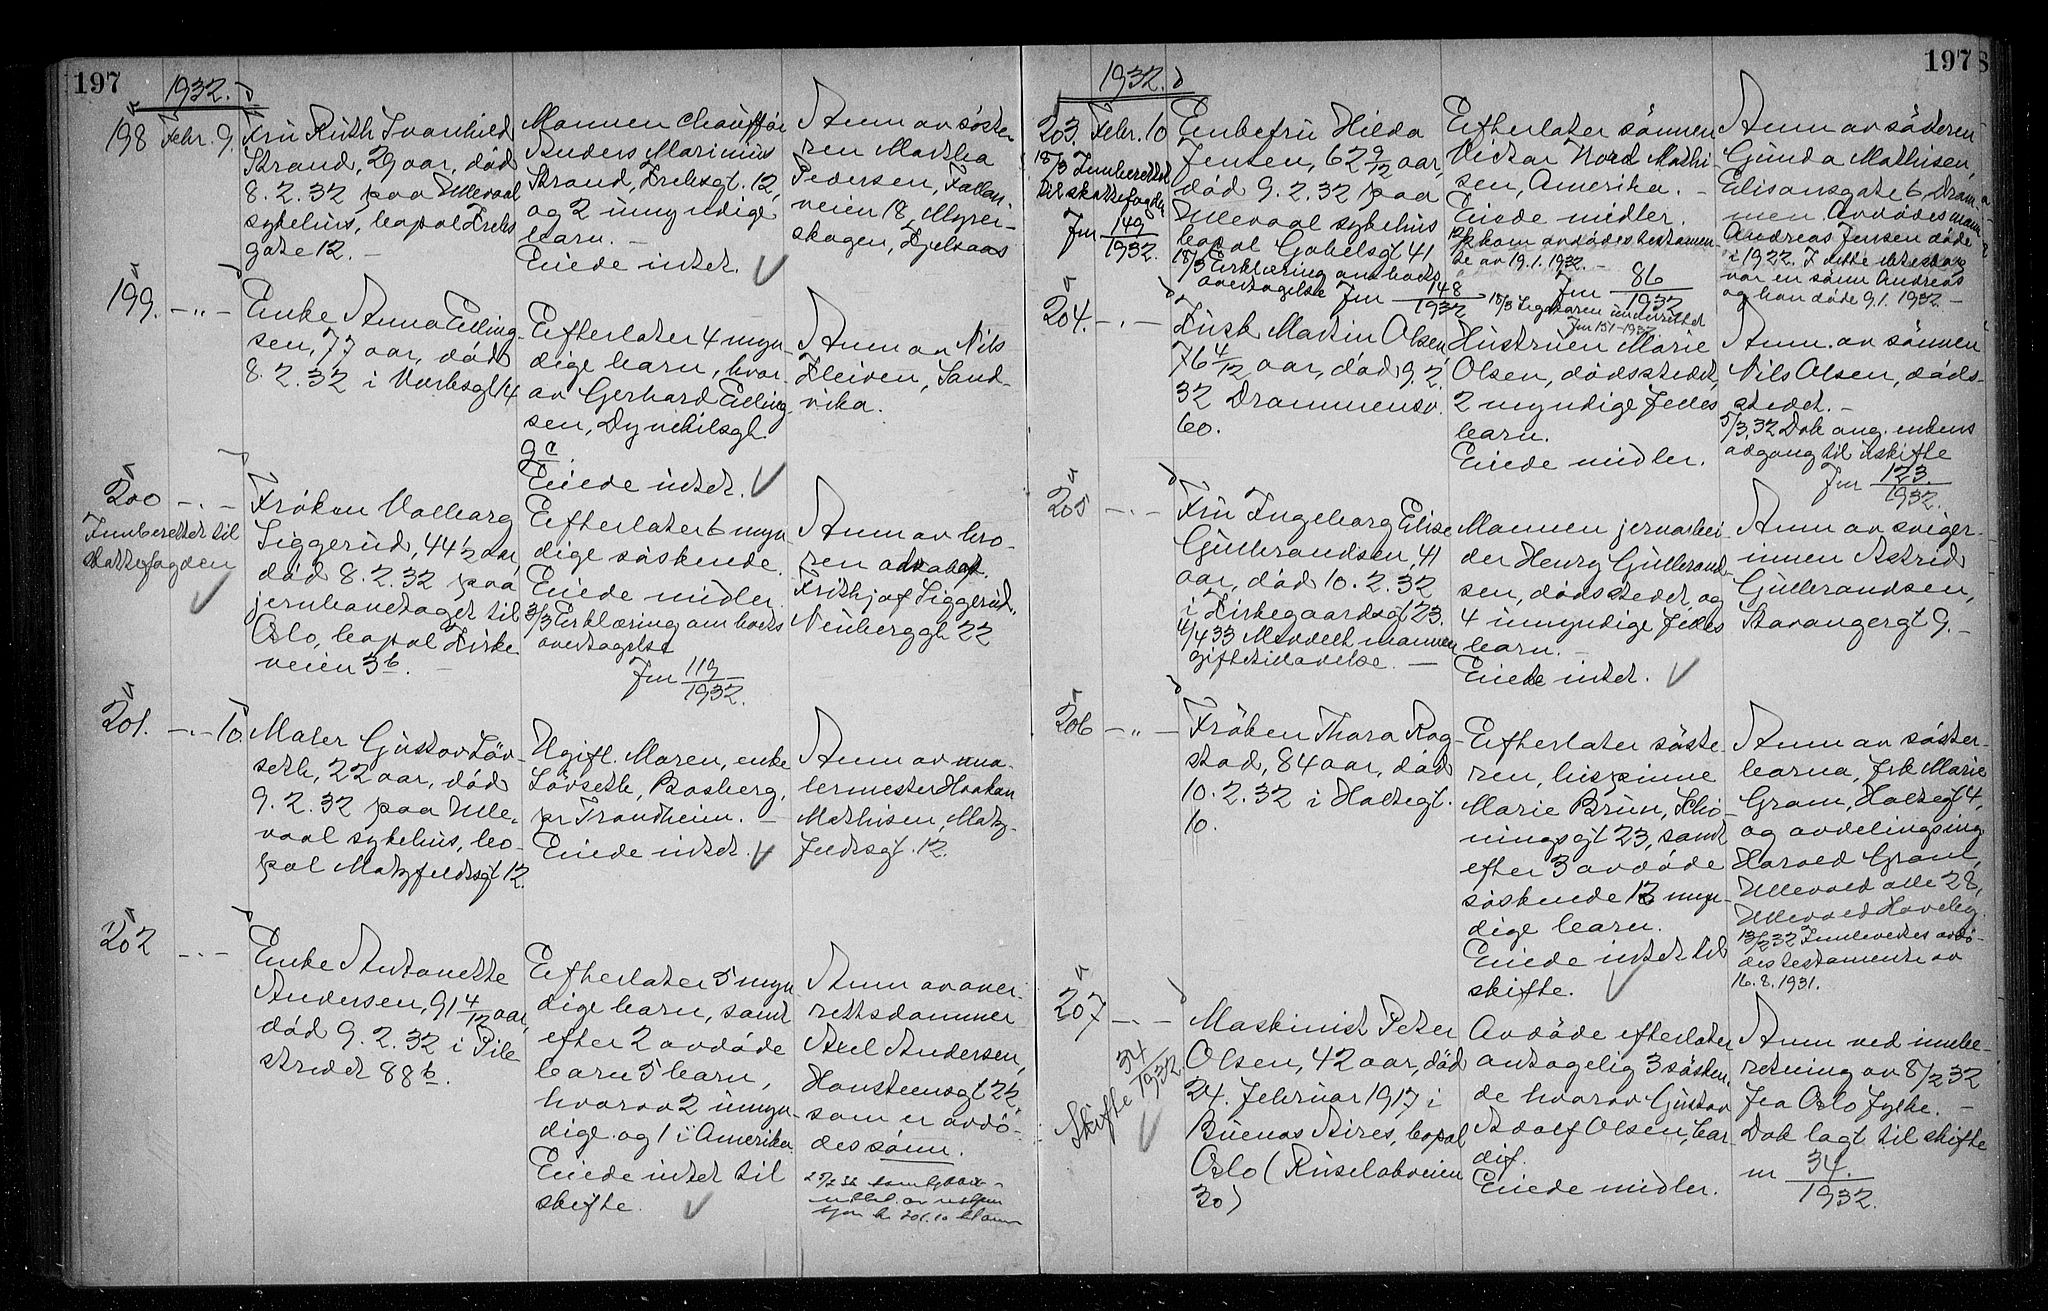 197
1932.
198
Febr. 9.
Fru Ruth Svanhild
Strand, 29 aar, død
8.2.32 paa Ullevaal
sykehus, bopal Krebs
gate 12. —
Mannen chauffør
Anders Marinius
Strand, Krebsgt. 12,
og 2 umyndige
barn. —
Eiede intet.
Anm av søste-
ren Martha
Pedersen,
veien 18,
skogen, Kjelsaas
199. — " —
Enke Anna Elling-
sen, 77 aar, død
8.2.32 i Verksgt 14
Efterlater 4 myn-
dige barn, hvor-
av Gerhard Elling-
sen, Dynekilsgt.
9c
Eiede intet.
Anm av Nils
Kleiven, Sand-
vika.
200 — . —
Innberettet til
skattefogden
Frøken Valborg
Siggerud, 44 1/2 aar,
død 8.2.32 paa
jernbanetoget til
Oslo, bopal Kirke-
veien 3b. —
Efterlater 6 myn-
dige søskende.
Eiede midler.
3/3 Erklæring om boets
overtagelse
Jnr 119
1932.
Anm av bro-
ren advokat
Frithjof Siggerud,
Neuberggt. 22
201. — . — 10.
Maler Gustav Løv-
seth, 22 aar, død
9.2.32 paa Ulle-
vaal sykehus, bo-
pal Motzfeldtsgt 12.
Ugift. Moren, enke
Løvseth, Bosberg,
pr Trondheim. —
Eiede intet.
Anm av ma-
lermester Haakon
Mathisen, Motz-
feldtsgt. 12.
202 — . —
Enke Antonette
Andersen, 91 4/12 aar,
død 9.2.32 i Pile-
stredet 88b.
Efterlater 5 myn-
dige barn, samt
efter 2 avdøde
barn 5 barn,
hvorav 2 umyn-
dige og 1 i Amerika.
Eiede intet til
skifte.
Anm av over-
rettsdommer
Axel Andersen,
Hansteensgt 22,
som er avdø-
des sønn.
197
8
1932.
203. Febr. 10
18/3 Innberettet
til skattefogden
Jnr 149
1932.
Enkefru Hilda
Jensen, 62 9/12 aar,
død 9.2.32 paa
Ullevaal sykehus
bopal Gabelsgt 41
18/3 Erklæring om boets
overtagelse Jnr 148
1932
Efterlater sønnen
Victor Nord Mathi-
sen, Amerika. —
Eiede midler.
kom avdødes testamen-
te av 19.1.1932. —
Jnr 86
1932
18/3 Legataren underrettet
Jnr 151-1932
Anm av søsteren
Gunda Mathisen,
Elisonsgate 6, Dram-
men. Avdødes mann
Andreas Jensen døde
i 1922. I dette ekteskap
var en sønn Andreas
og han døde 9.1.1932. —
204. — . —
Kusk Martin Olsen
76 4/12 aar, død 9.2.
32 Drammensv.
60.
Hustruen Marie
Olsen, dødsstedet,
2 myndige felles
barn.
Eiede midler.
Anm. av sønnen
Nils Olsen, døds-
stedet. —
5/3.32 Dok ang. enkens
adgang til uskifte
Jnr 123
1932.
205 — . —
Fru Ingeborg Elise
Gulbrandsen, 41
aar, død 10.2.32
i Kirkegaardsgt 23.
4/4 33 Meddelt mannen
giftetilladelse. —
Mannen jernarbei-
der Henry Gulbrand-
sen, dødsstedet, og
4 umyndige felles
barn. —
Eiede intet.
Anm av sviger-
innen Astrid
Gulbrandsen,
Stavangergt 9. —
206 — " —
Frøken Thora Rog-
stad, 84 aar, død
10.2.32 i Holtegt.
10.
Efterlater søste-
ren, lispinne
Marie Brun, Schø-
ningsgt 23, samt
efter 3 avdøde
søskende 13 myn-
dige barn.
Eiede intet til
skifte.
Anm av søster-
barna, frk Marie
Gram, Holtegt 4,
og avdelingsing.
Harald Gram,
Ullevold alle 28,
Ullevold Haveby.
13/2 32 Innlevertes avdø-
des testamente av
16.8.1931.
207 — . —
Skifte 34
1932.
Maskinist Peter
Olsen, 42 aar, død
24. februar 1917 i
Buenos Aires, bopal
Oslo (Ruseløkveien
30)
Avdøde efterlater
antagelig 3 søsken-
de hvorav Gustav
Adolf Olsen, Car-
dif.
Eiede midler.
Anm ved innbe-
retning av 8/2 32
fra Oslo fylke. —
Dok lagt til skifte
nr 34.
1932.